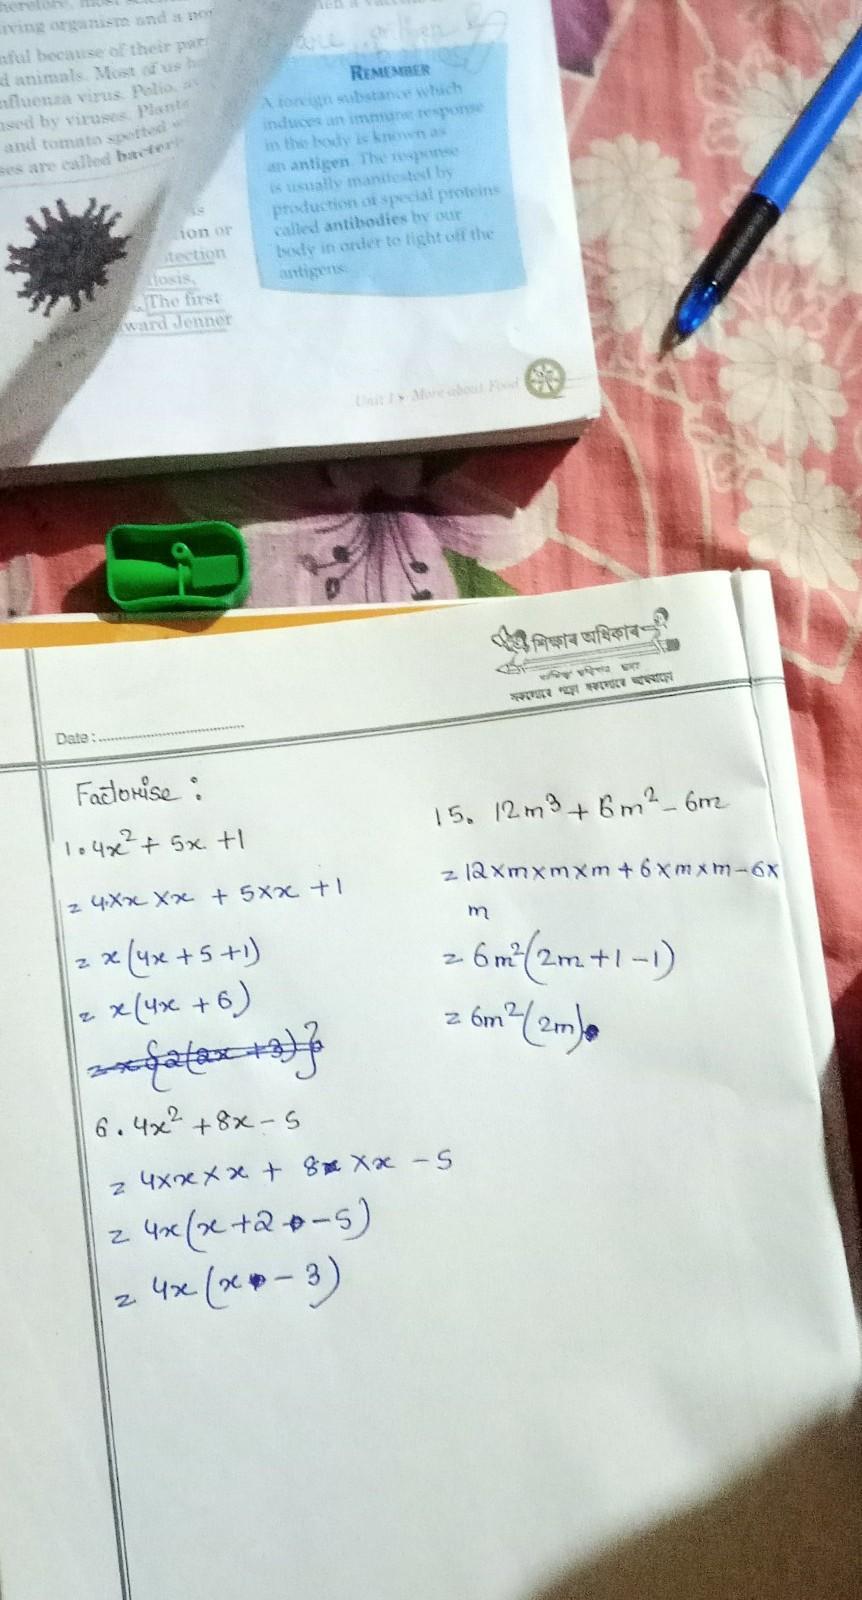 ving organism and a no
ful because of their par
d animals. Most of us h
nfluenza virus. Polio,
sed by viruses. Plants
and tomato spotted
ses are called bacter
is
ion or
tection
losis,
The first
ward Jenner
REMEMBER
A foreign substance which
induces an immune response
in the body is known as
an antigen. The response
is usually manifested by
production of special proteins
called antibodies by our
body in order to fight off the
antigens.
Unit 1 ▸ More about Food
শিক্ষাৰ অধিকাৰ
Date :
Factorise :
1. 4x² + 5x + 1
= 4×x×x + 5×x + 1
= x(4x + 5 + 1)
= x(4x + 6)
= x{2(2x + 3)}
6. 4x² + 8x - 5
= 4×x×x + 8×x - 5
= 4x(x + 2 - 5)
= 4x(x - 3)
15. 12m³ + 6m² - 6m
= 12×m×m×m + 6×m×m - 6×
m
= 6m²(2m + 1 - 1)
= 6m²(2m)